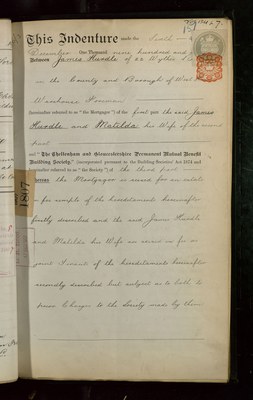 This Indenture made the Tenth day
December One Thousand nine hundred and
Between James Hursdle of 22 Wythes
in the County and Borough of West
Warehouse Foreman
(hereinafter referred to as "the Mortgagor") of the first part the said James
Hursdle and Matilda his Wife of the second
part
The Cheltenham and Gloucestershire Permanent Mutual Benefit
Building Society," (incorporated pursuant to the Building Societies' Act 1874 and
hereinafter referred to as "the Society") of the third part
Whereas the Mortgagor is seised for an estate
in fee simple of the hereditaments hereinafter
firstly described and the said James Hursdle
and Matilda his Wife are seised in fee as
joint Tenants of the hereditaments hereinafter
secondly described but subject as to both to
Charges to the Society made by them
1917